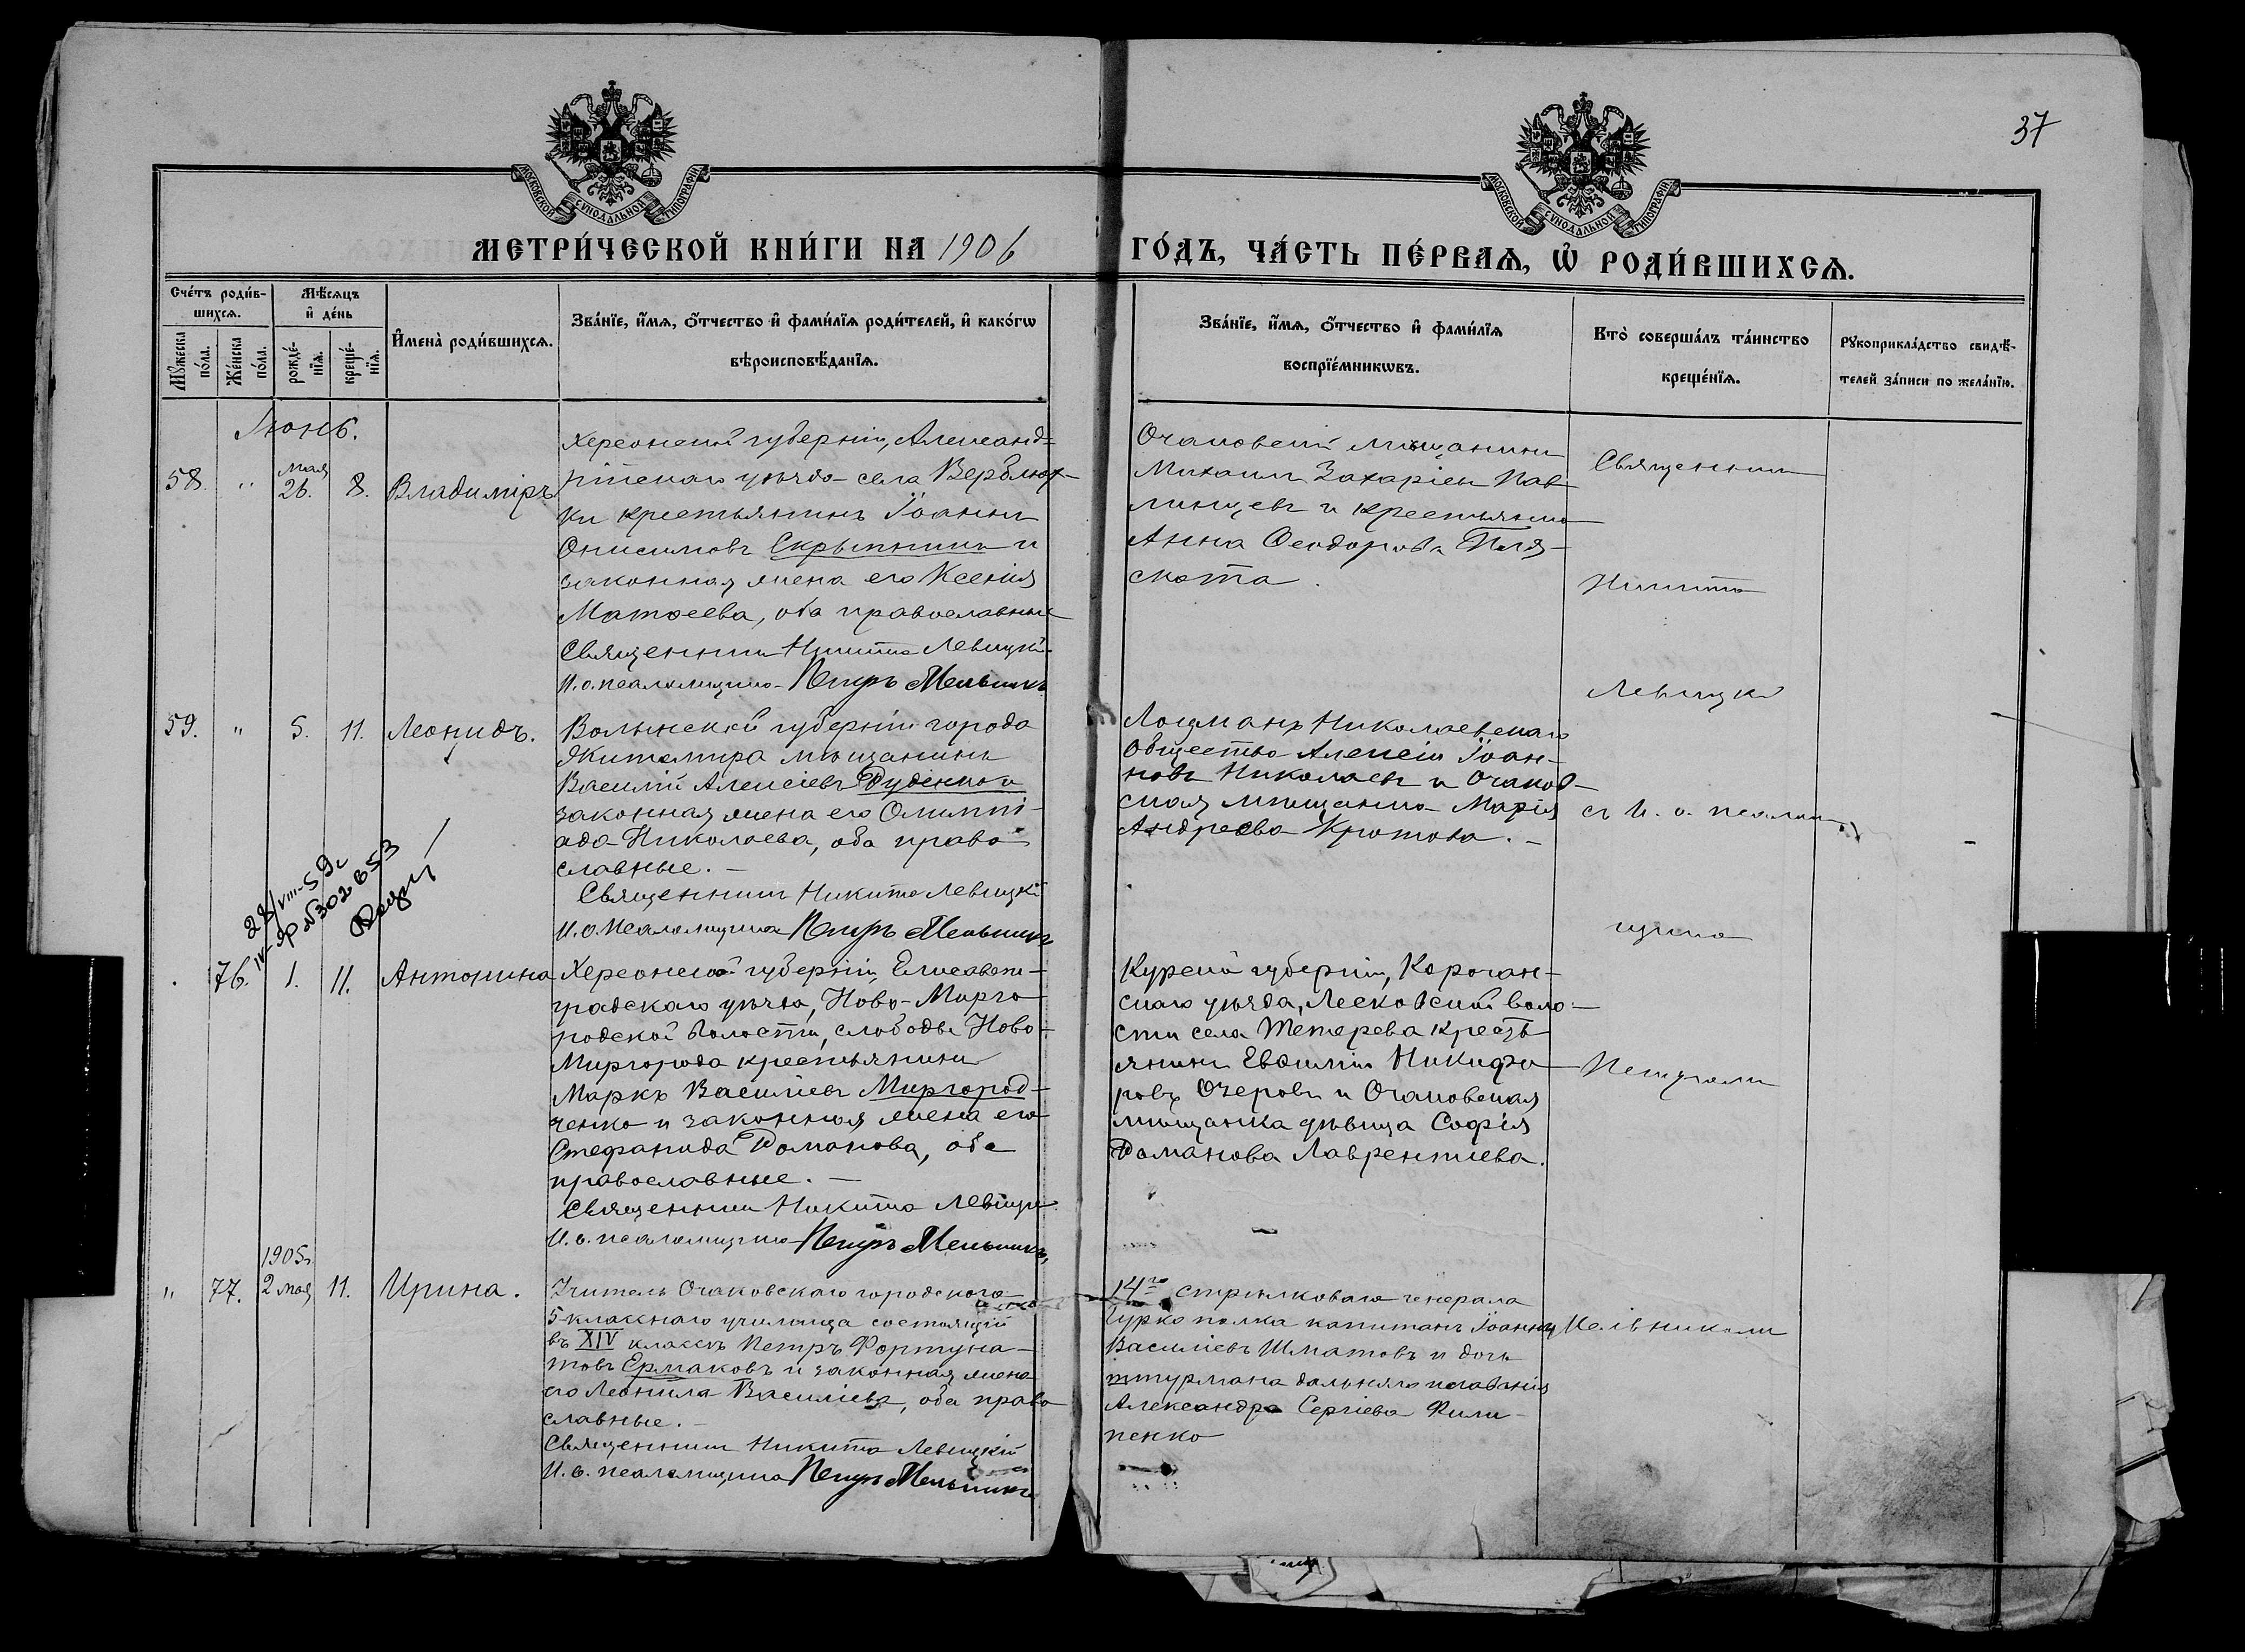 37
МОСКОВСКОЙ СѴНОДАЛЬНОЙ ТИПОГРАФІИ
МОСКОВСКОЙ СѴНОДАЛЬНОЙ ТИПОГРАФІИ
МЕТРИ́ЧЕСКОЙ КНИ́ГИ НА 1906
ГО́ДЪ, ЧА́СТЬ ПЕ́РВАѦ, Ѽ РОДИ́ВШИХСѦ.
Сче́тъ роди́в-
шихсѧ.
Мꙋ́жеска по́ла.
Же́нска по́ла.
Мѣ́сѧцъ
и҆ де́нь
рожде́-
нїѧ.
креще́-
нїѧ.
И҆мена̀ роди́вшихсѧ.
Зва́нїе, и҆́мѧ, ѻ҆́тчество и҆ фами́лїѧ роди́телей, и҆ како́гѡ
вѣроисповѣ́данїѧ.
Зва́нїе, и҆́мѧ, ѻ҆́тчество и҆ фами́лїѧ
воспрїе́мникѡвъ.
Кто̀ соверша́лъ та́инство
креще́нїѧ.
Рꙋкоприкла́дство свидѣ́-
телей за́писи по жела́нїю.
Іюнь.
58. " Мая 26. 8. Владиміръ
Херсонской губерніи, Александ-
рійскаго уѣзда села Верблюж-
ки крестьянинъ Іоаннъ
Онисимовъ Скрыпникъ и
законная жена его Ксенія
Матѳеева, оба православные
Священникъ Никита Левицкій
И. о. псаломщика Петръ Мельникъ
Очаковскій мѣщанинъ
Михаилъ Захаріевъ Пав-
линцевъ и крестьянка
Анна Ѳеодорова Пля-
скота.
Священникъ
Никита
Левицкій
59. " 5. 11. Леонидъ.
Волынской губерніи города
Житомира мѣщанинъ
Василій Алексіевъ Руденко и
законная жена его Олимпі-
ада Николаева, оба право
славные. —
Священникъ Никита Левицкій
И. о. Псаломщика Петръ Мельникъ
Лоцманъ Николаевскаго
общества Алексій Іоан-
новъ Николаевъ и Очаков-
ская мѣщанка Марія
Андреева Кротова. —
съ И. о. псалом-
щика
28/VIII-59г
IV-ЯР №302653
76. 1. 11. Антонина
Херсонской губерніи, Елисавет-
градскаго уѣзда, Ново-Мирго-
родской волости, слободы Ново-
Миргорода крестьянинъ
Маркъ Василіевъ Миргород-
ченко и законная жена его
Стефанида Романова, оба
православные. —
Священникъ Никита Левицкій
И. о. псаломщика Петръ Мельникъ
Курской губерніи, Корочан-
скаго уѣзда, Лесковской воло-
сти села Тетерева крестъ
янинъ Евѳимій Никифо
ровъ Озеровъ и Очаковская
мѣщанка дѣвица Софія
Романова Лаврентіева.
Петромъ
" 77. 1905г. 2 мая 11. Ирина.
Учитель Очаковскаго городского
5-класснаго училища состоящій
въ XIV классѣ Петръ Фортуна-
товъ Ермаковъ и законная жена
его Леонила Василіева, оба право
славные. —
Священникъ Никита Левицкій
И. о. псаломщика Петръ Мельникъ
14го стрѣлковаго генерала
Гурко полка капитанъ Іоаннъ
Василіевъ Шматовъ и дочь
штурмана дальняго плаванія
Александра Сергіева Фили-
пенко
Мельникомъ